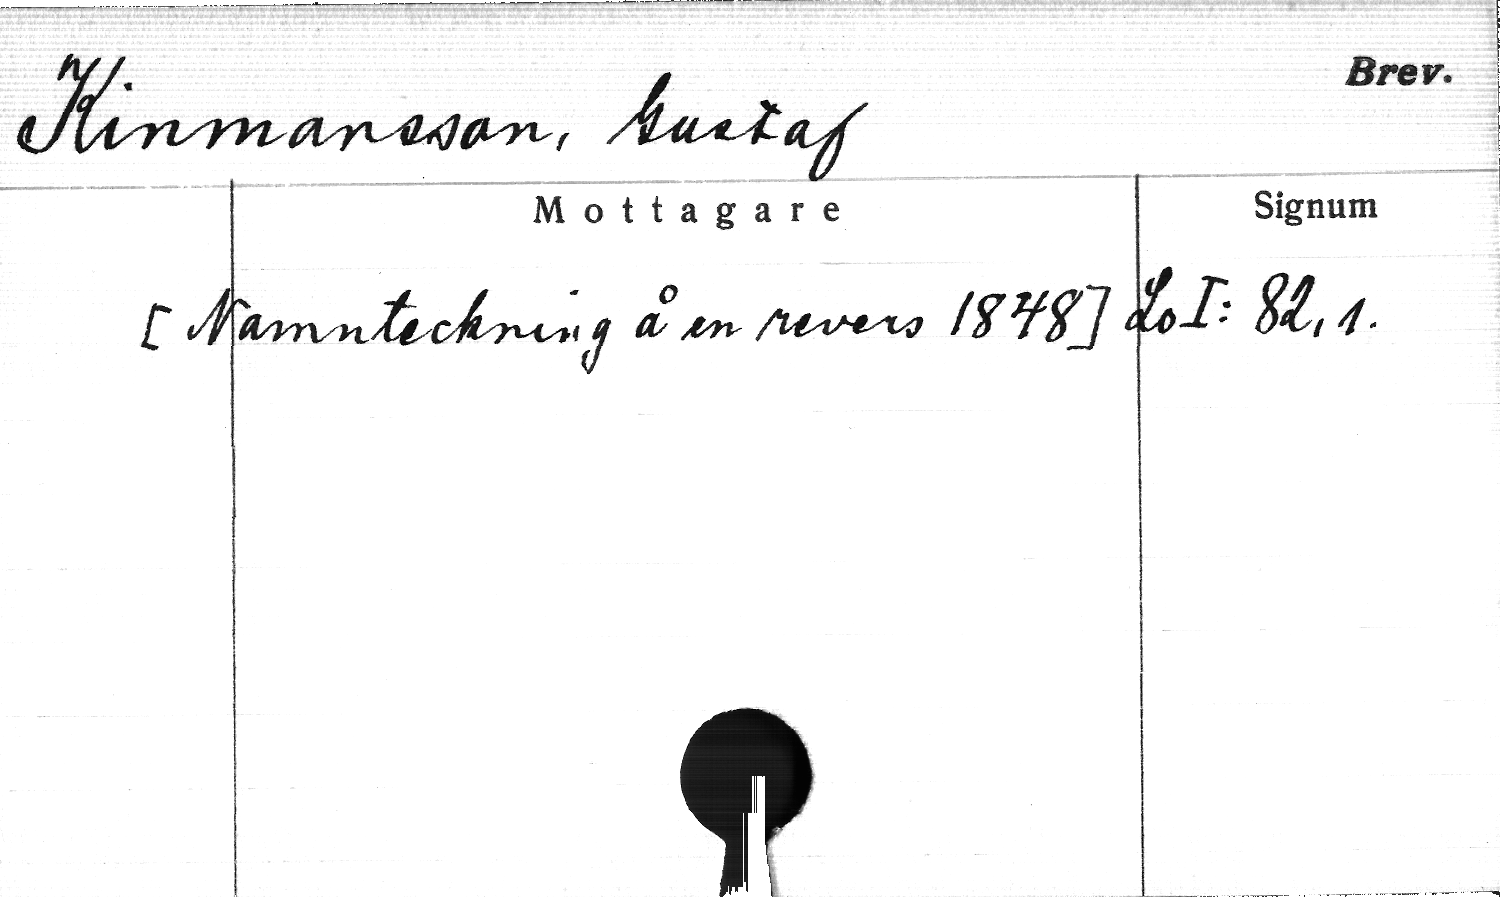 Brev.
Kinmansson, Gustaf
Mottagare
Signum
[Namnteckning å en revers 1848] Lo I: 82, 1.